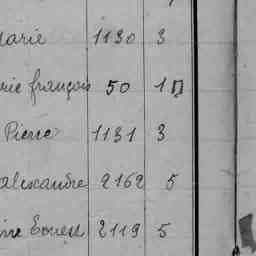 Marie 1130 3
rie françois 50 1
Pierre 1131 3
alexandre 2162 5
Ernest 2119 5